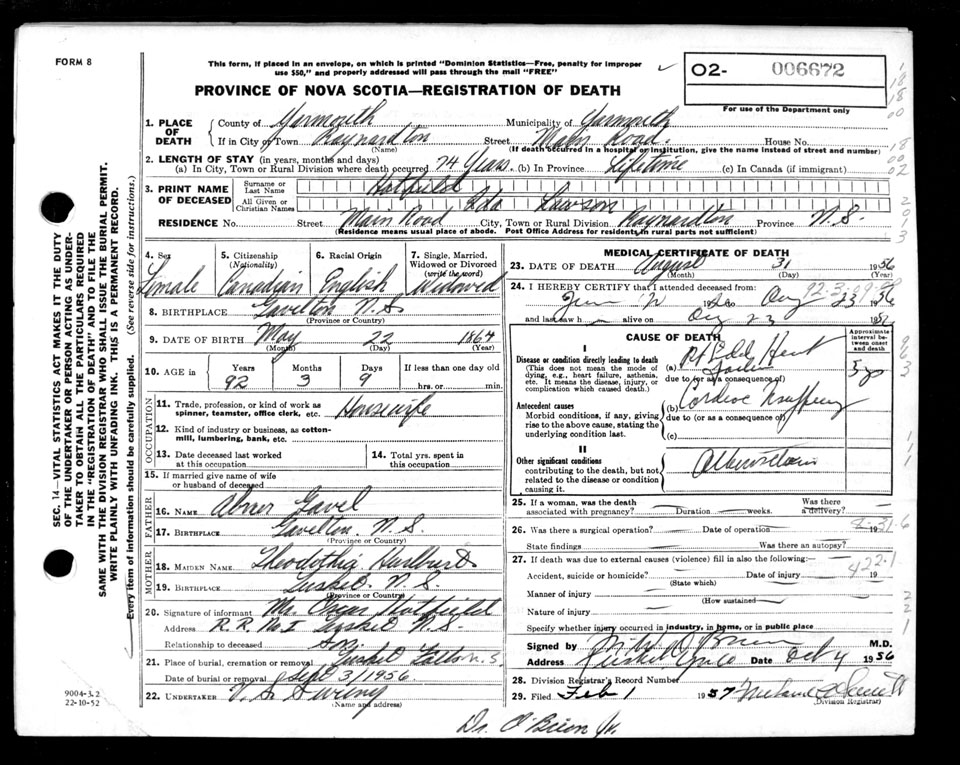 FORM 8
This form, if placed in an envelope, on which is printed "Dominion Statistics—Free, penalty for improper
use $50," and properly addressed will pass through the mail "FREE"
PROVINCE OF NOVA SCOTIA—REGISTRATION OF DEATH
02- 006672
For use of the Department only
SEC. 14—VITAL STATISTICS ACT MAKES IT THE DUTY
OF THE UNDERTAKER OR PERSON ACTING AS UNDER-
TAKER TO OBTAIN ALL THE PARTICULARS REQUIRED
IN THE "REGISTRATION OF DEATH" AND TO FILE THE
SAME WITH THE DIVISION REGISTRAR WHO SHALL ISSUE THE BURIAL PERMIT.
WRITE PLAINLY WITH UNFADING INK. THIS IS A PERMANENT RECORD.
Every item of information should be carefully supplied. (See reverse side for instructions.)
1. PLACE OF DEATH
County of Yarmouth Municipality of Yarmouth
If in City or Town Raynardton Street Main Road. House No.
(Name) (If death occurred in a hospital or institution, give the name instead of street and number)
2. LENGTH OF STAY (in years, months and days)
(a) In City, Town or Rural Division where death occurred 74 Years. (b) In Province Lifetime (c) In Canada (if immigrant)
3. PRINT NAME OF DECEASED
Surname or Last Name Hatfield
All Given or Christian Names Ida Lawson
RESIDENCE No. Street Main Road City, Town or Rural Division Raynardton Province N.S.
(Residence means usual place of abode. Post Office Address for residents in rural parts not sufficient)
4. Sex
5. Citizenship (Nationality)
6. Racial Origin
7. Single, Married, Widowed or Divorced (write the word)
Female Canadian English Widowed
8. BIRTHPLACE Gavelton N.S.
(Province or Country)
9. DATE OF BIRTH May 22 1864
(Month) (Day) (Year)
10. AGE in Years Months Days If less than one day old
92 3 9 hrs. or min.
OCCUPATION
11. Trade, profession, or kind of work as
spinner, teamster, office clerk, etc. Housewife
12. Kind of industry or business, as cotton-
mill, lumbering, bank, etc.
13. Date deceased last worked
at this occupation
14. Total yrs. spent in
this occupation
15. If married give name of wife
or husband of deceased
FATHER
16. NAME Abner Gavel
17. BIRTHPLACE Gavelton, N.S.
(Province or Country)
MOTHER
18. MAIDEN NAME Hurlburt
19. BIRTHPLACE Tusket N.S.
(Province or Country)
20. Signature of informant Mr. Oscar Hatfield
Address R.R. No 1 Tusket N.S.
Relationship to deceased Son.
21. Place of burial, cremation or removal Tusket
Date of burial or removal Sept 3/1956
22. UNDERTAKER V. S. Sweeny
(Name and address)
9004-3.2
22-10-52
MEDICAL CERTIFICATE OF DEATH
23. DATE OF DEATH August 31 1956
(Month) (Day) (Year)
24. I HEREBY CERTIFY that I attended deceased from:
19 to Aug 23 1956
and last saw h alive on Aug 23 195
CAUSE OF DEATH
Approximate interval between onset and death
I
Disease or condition directly leading to death
(This does not mean the mode of
dying, e.g., heart failure, asthenia,
etc. It means the disease, injury, or
complication which caused death.)
(a) Heart
Failure
due to (or as a consequence of)
Antecedent causes
Morbid conditions, if any, giving
rise to the above cause, stating the
underlying condition last.
(b) Cardiac
due to (or as a consequence of)
(c)
II
Other significant conditions
contributing to the death, but not
related to the disease or condition
causing it.
25. If a woman, was the death
associated with pregnancy? Duration weeks. Was there
a delivery?
26. Was there a surgical operation? Date of operation 19
State findings Was there an autopsy?
27. If death was due to external causes (violence) fill in also the following:
422.1
Accident, suicide or homicide? Date of injury 19
(State which)
Manner of injury
(How sustained)
Nature of injury
Specify whether injury occurred in industry, in home, or in public place
Signed by O'Brien M.D.
Address Tusket Date Oct 4 1956
28. Division Registrar's Record Number
29. Filed Feb 1 1957
(Division Registrar)
Dr. O'Brien Jr.